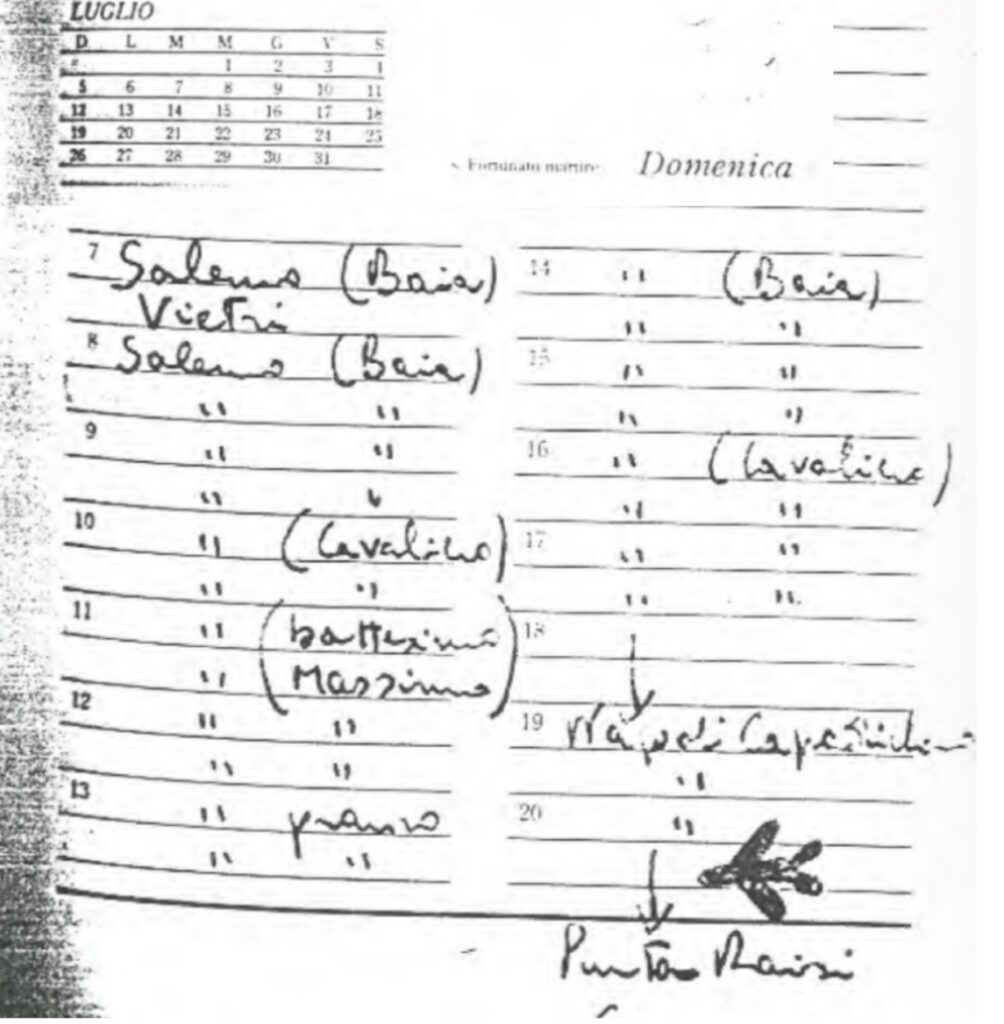 LUGLIO
D L M M G V S
1 2 3 4
5 6 7 8 9 10 11
12 13 14 15 16 17 18
19 20 21 22 23 24 25
26 27 28 29 30 31
Fortunato martire Domenica
7 Salerno (Baia)
Vietri
8 Salerno (Baia)
" "
9 " "
" "
10 " (Cavaliere)
" "
11 " (battesimo
" Massimo)
12 " "
" "
13 " pranzo
" "
14 " (Baia)
" "
15 " "
" "
16 " (Cavaliere)
" "
17 " "
" "
18
19 Napoli Capodichino
"
20 "
Punta Raisi